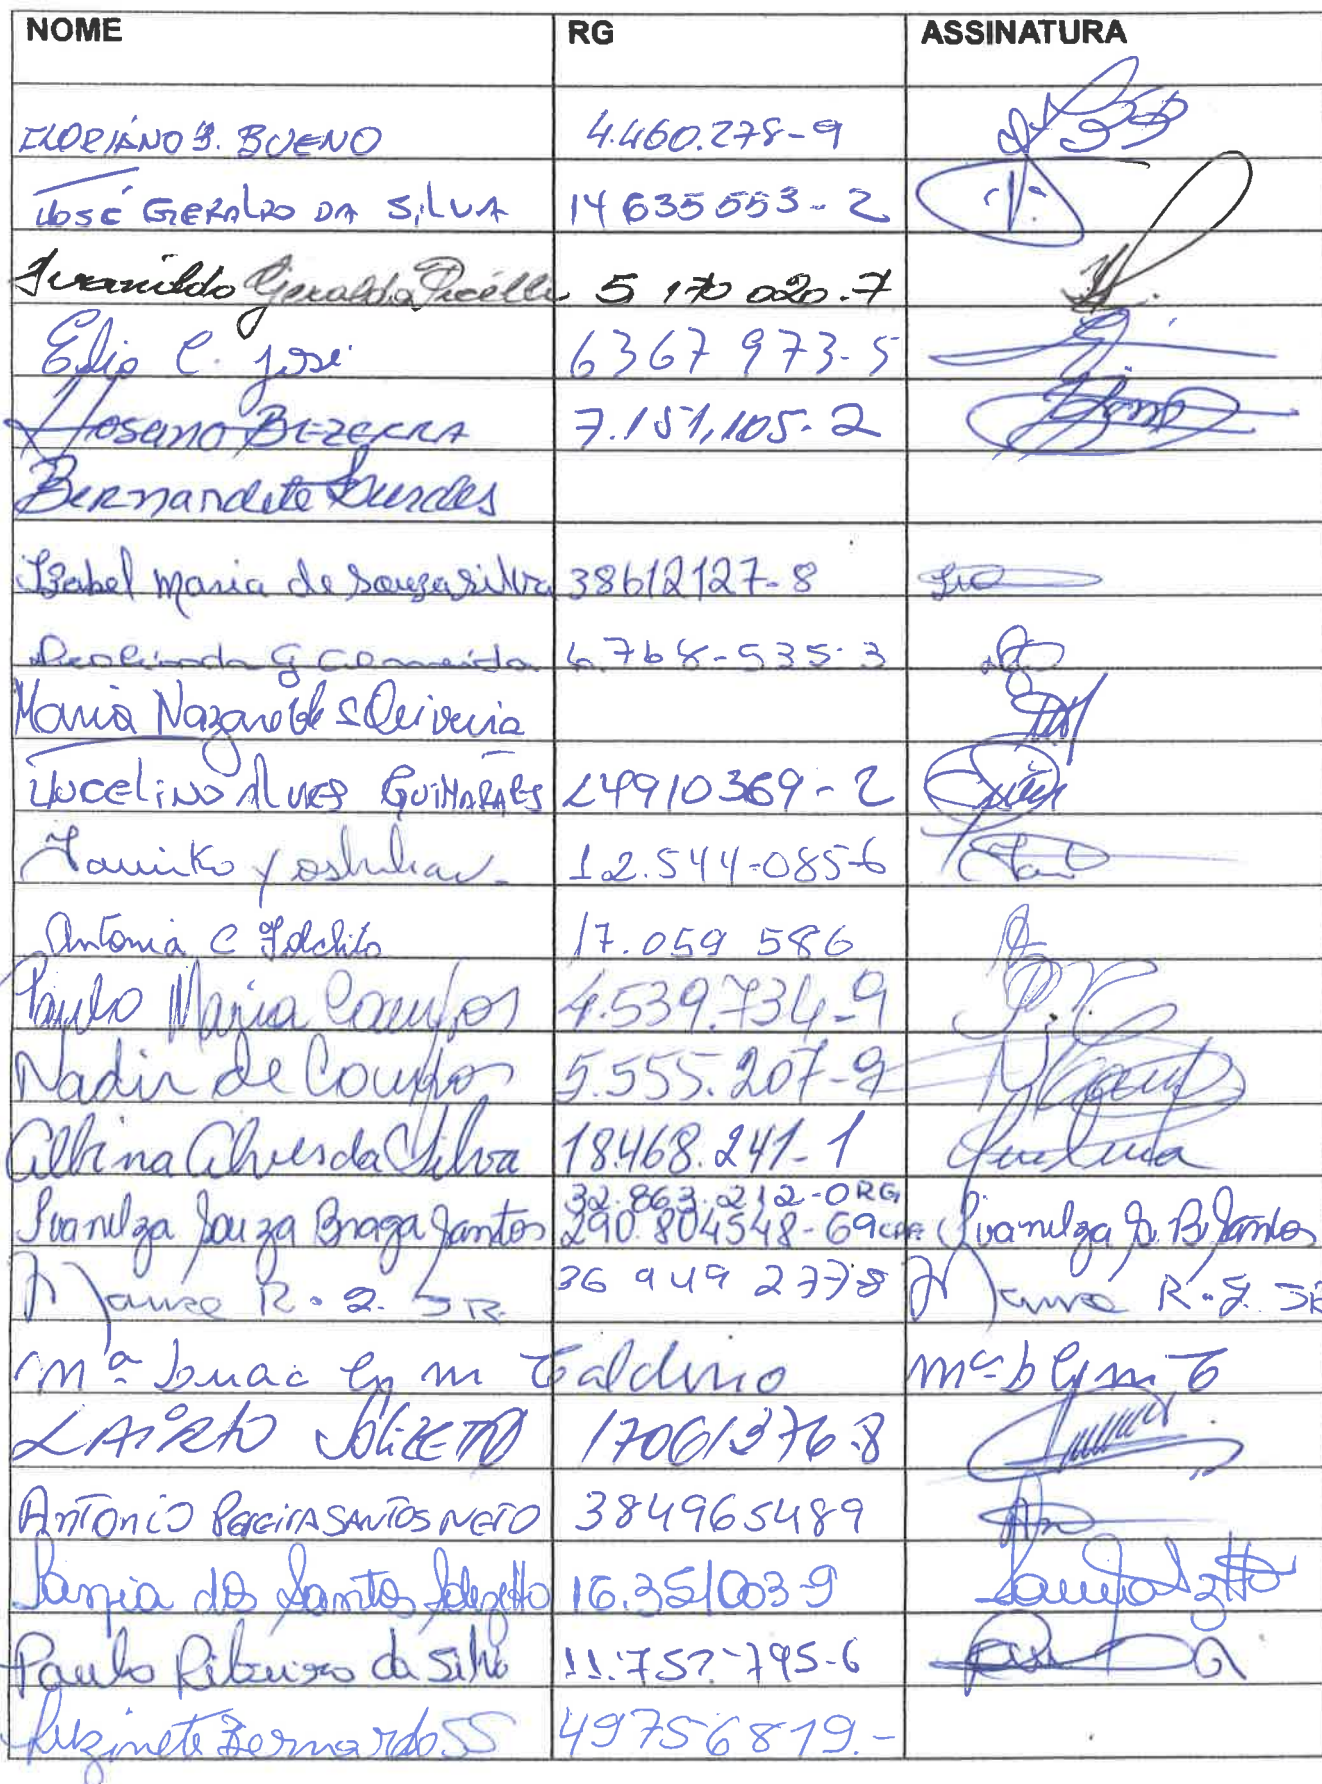 NOME RG ASSINATURA
FLORIANO B. BUENO 4.460.278-9
José GERALDO DA SILVA 14 635 553-2
Ivanildo Geraldo Picelli 5 170 020.7
Elio C. José 6367 973-5
Hosano BEZERRA 7.151,105-2
Bernardete Lurdes
Izabel Maria de Souza Silva 38612127-8
Deolinda G Almeida 6.768-535-3
Maria Nazareth S Oliveira
JUCELINO ALVES GUIMARÃES 24910369-2
Tamiko 12.544-085-6
Antonia C 17.059 586
Paulo Maria Campos 4.539.734-9
Nadir de Campos 5.555.207-9
Albina Alves da Silva 18.468.241-1
32.863.212-0 RG
Ivanilza Souza Braga Santos 290.804548-69 CPF Ivanilza S. B. Santos
R. 36 949 277-8 R.
Mª Galdino
LAÉRTO SOLIZETO 17061376-8
ANTONIO PEREIRA SANTOS NETO 384965489
Sania dos Santos 16.351003-9
Paulo Ribeiro da Silva 11.757-795-6
Luzinete Bernardo SS 49756819.-